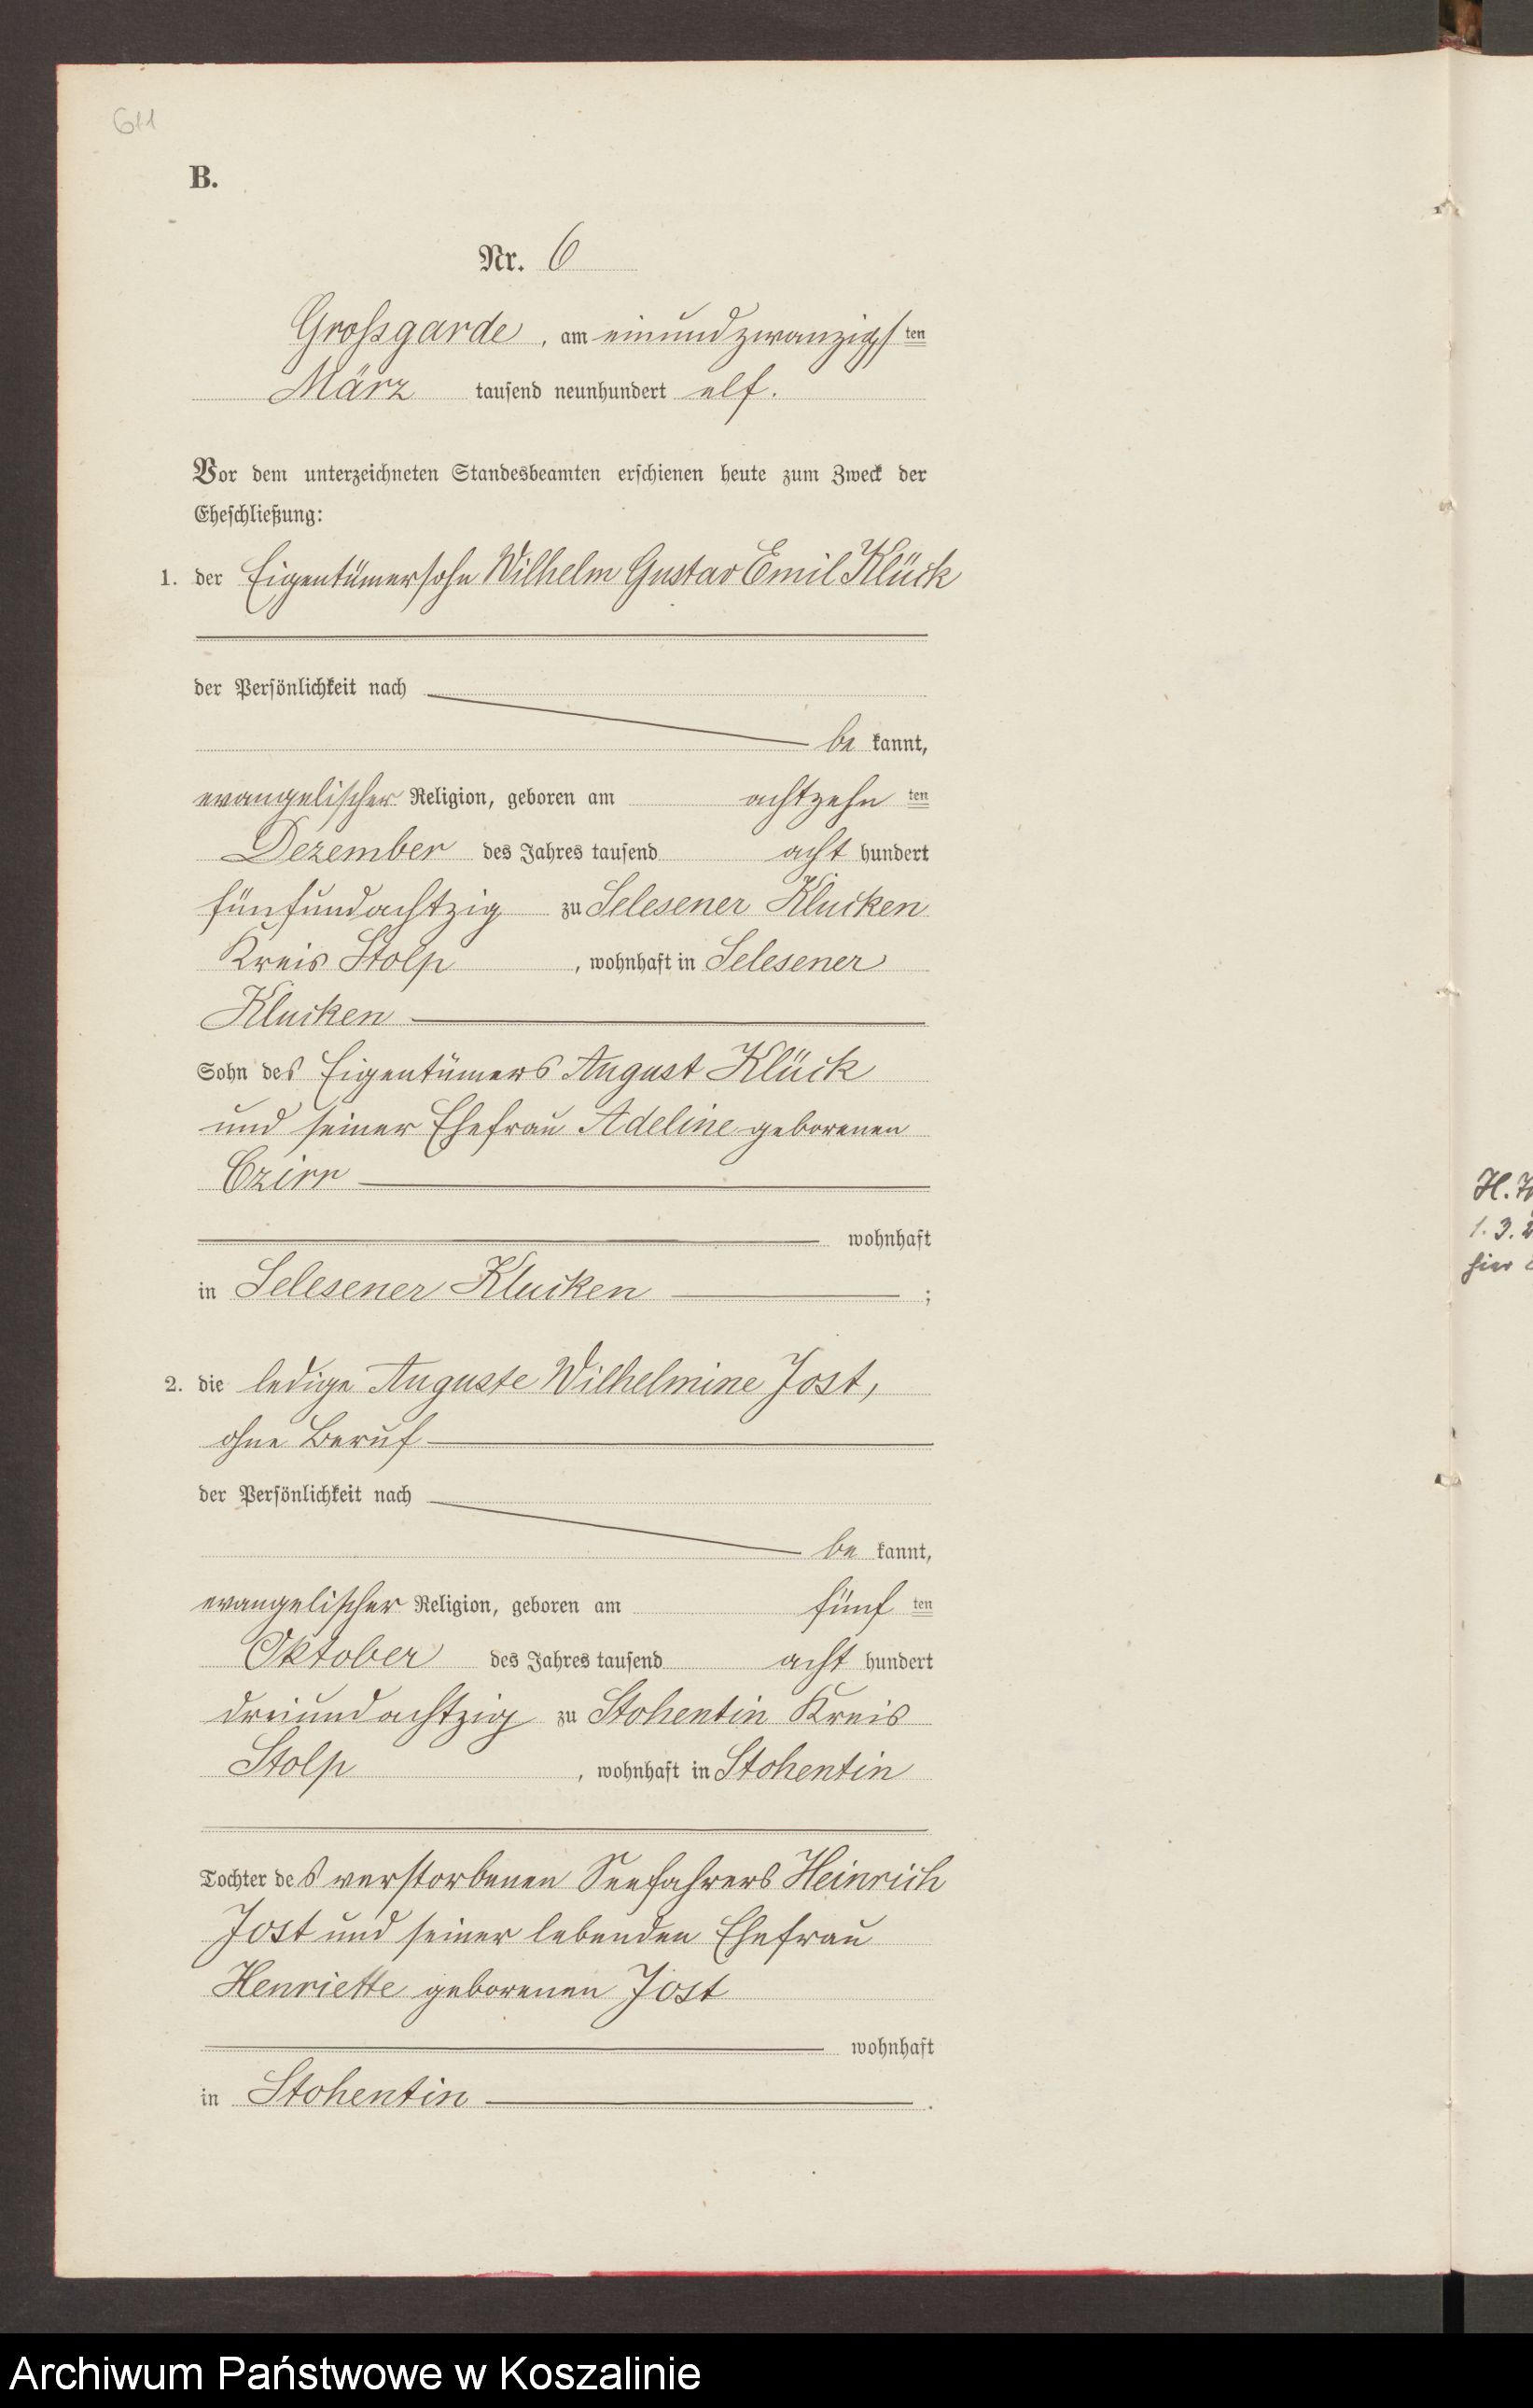 611
B.
Nr. 6
Grossgarde, am einundzwanzigsten
März tausend neunhundert elf.
Vor dem unterzeichneten Standesbeamten erschienen heute zum Zweck der
Eheschließung:
1. der Eigentümersohn Wilhelm Gustav Emil Klück
der Persönlichkeit nach
be kannt,
evangelischer Religion, geboren am achtzehn ten
Dezember des Jahres tausend acht hundert
fünfundachtzig zu Selesener Klucken
Kreis Stolp, wohnhaft in Selesener
Klucken
Sohn des Eigentümers August Klück
und seiner Ehefrau Adeline geborenen
Czirr
wohnhaft
in Selesener Klucken ;
2. die ledige Auguste Wilhelmine Jost,
ohne Beruf
der Persönlichkeit nach
be kannt,
evangelischer Religion, geboren am fünf ten
Oktober des Jahres tausend acht hundert
dreiundachtzig zu Stohentin Kreis
Stolp, wohnhaft in Stohentin
Tochter des verstorbenen Seefahrers Heinrich
Jost und seiner lebenden Ehefrau
Henriette geborenen Jost
wohnhaft
in Stohentin.
H.
1. 3.
hier
Archiwum Państwowe w Koszalinie